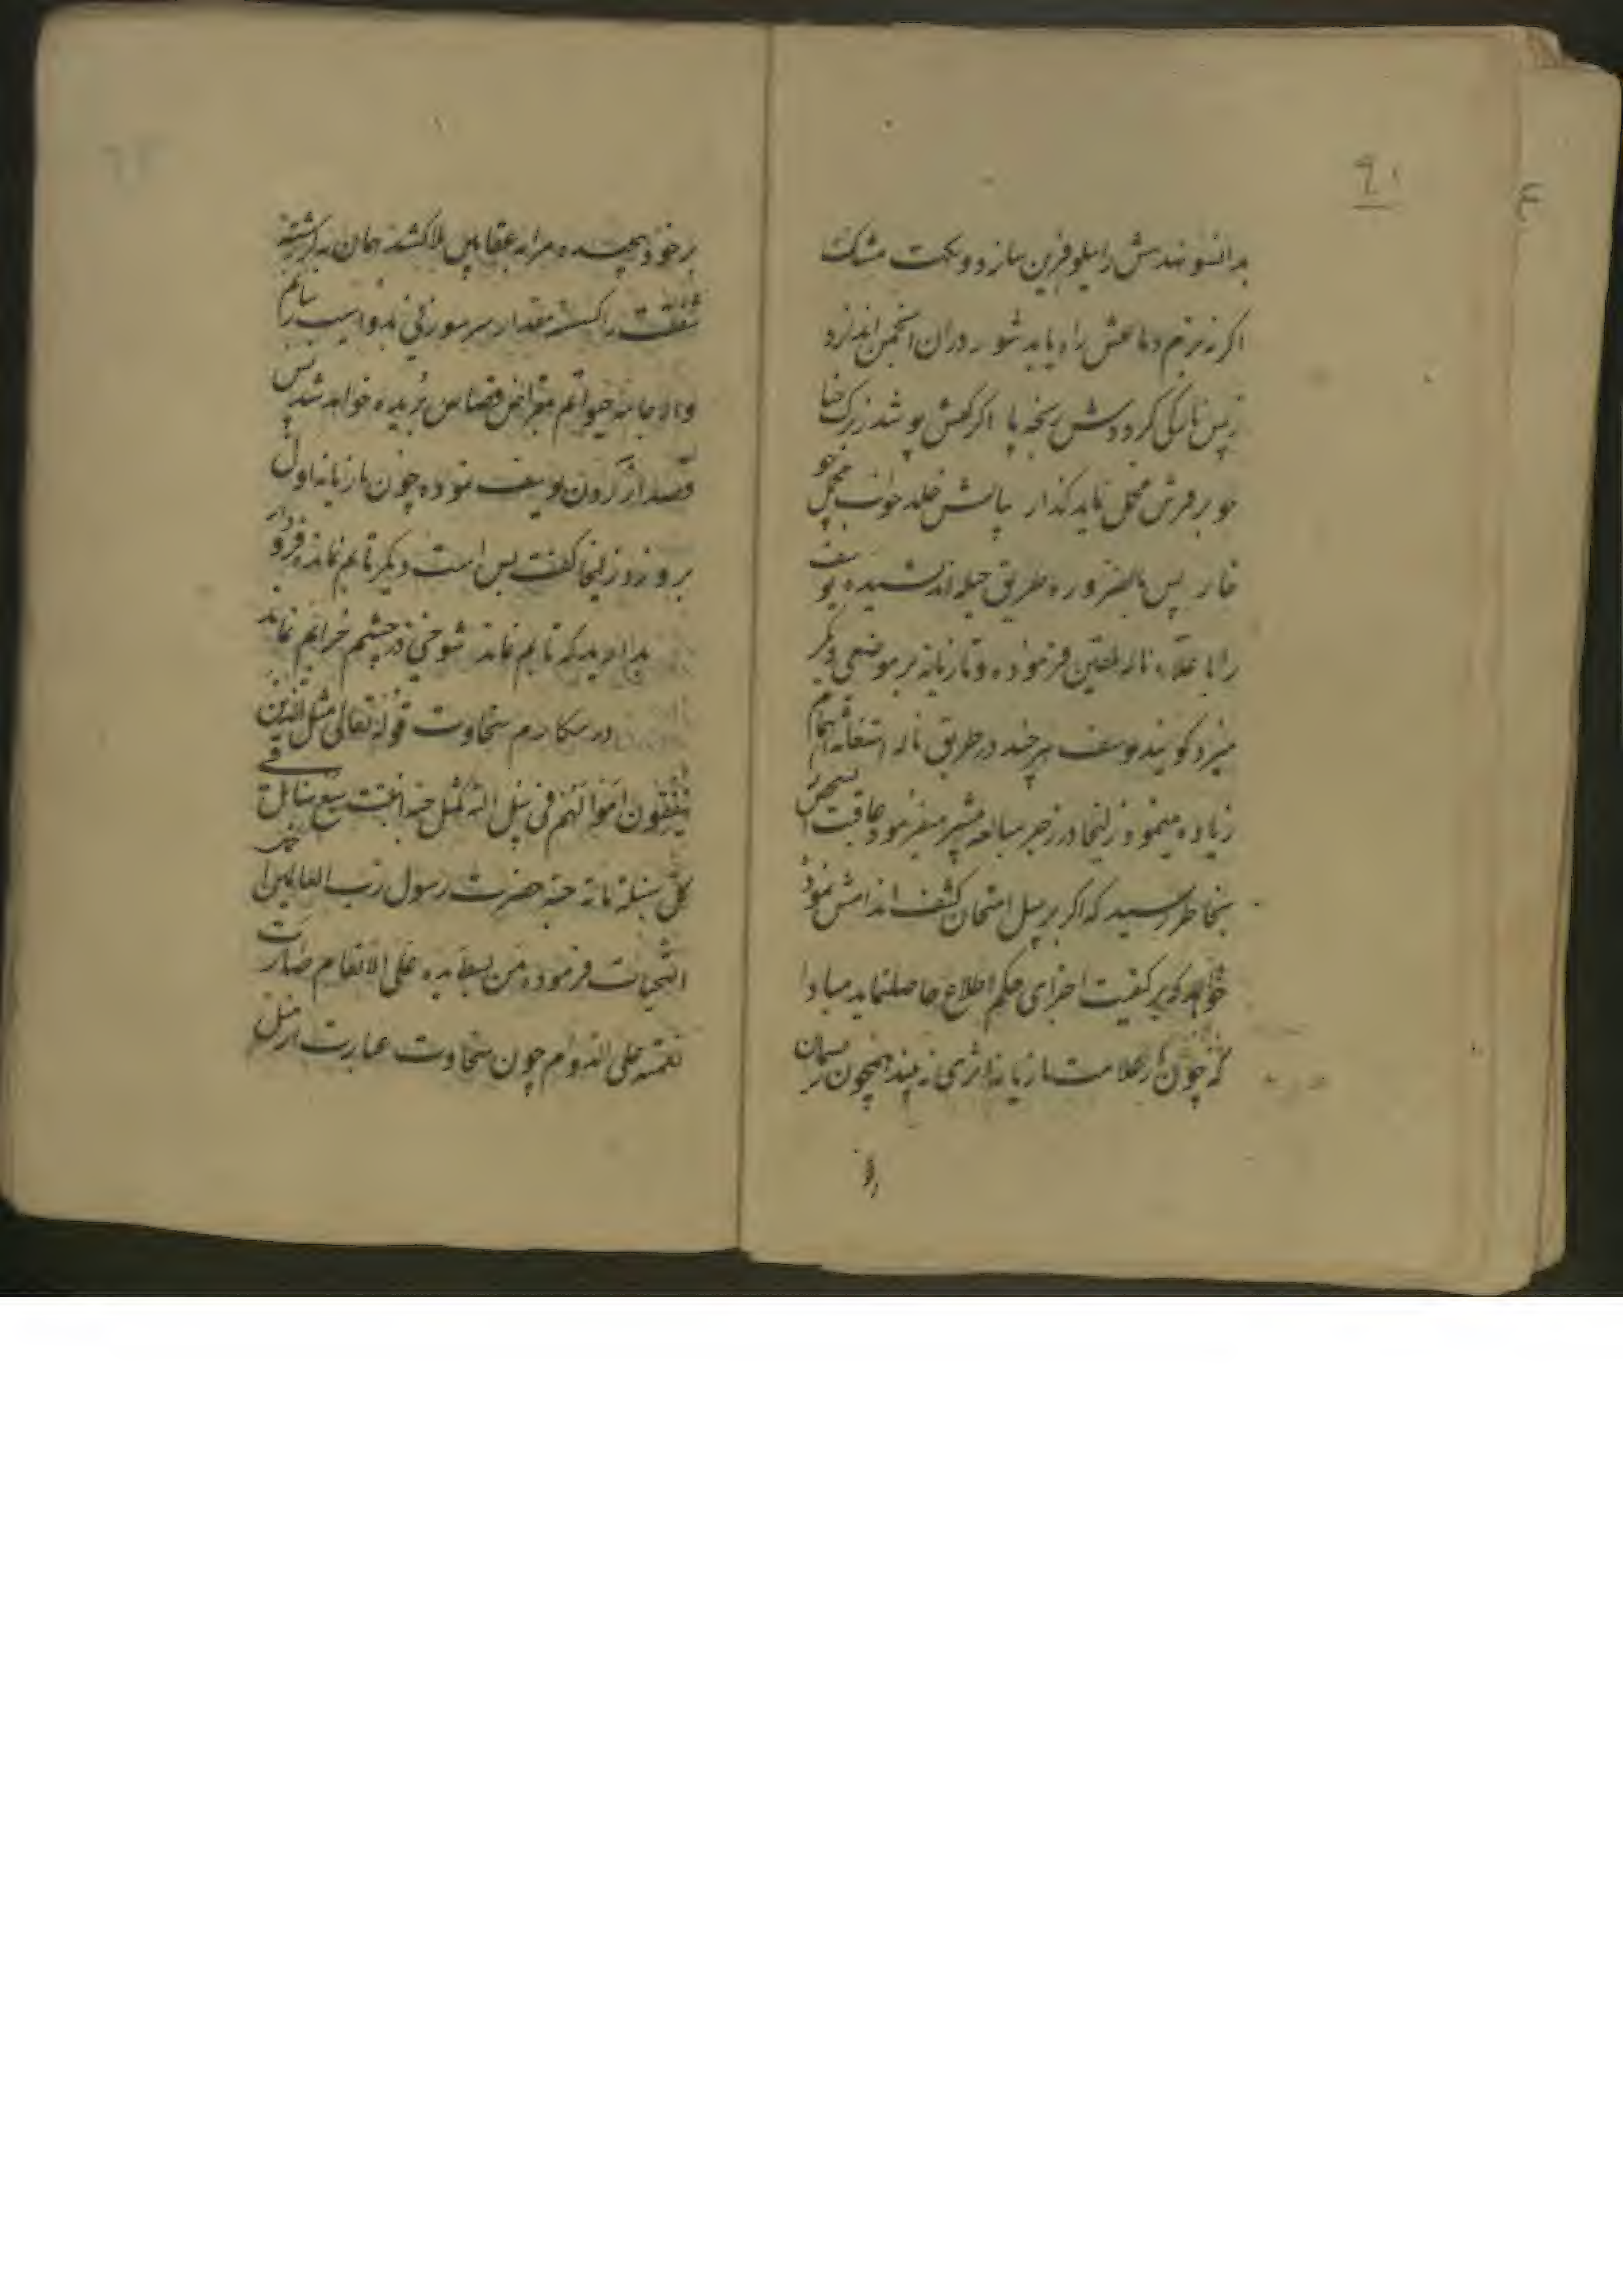 ۹۱
بدانسو نهدمش را نیلوفرین سازد و نکهت مشک
اگر در بزم دماغش راه یابد شور دران انجمن اندازد
ز بس نازکی کرددش رنجه پا اگر کفش پوشد ز برک حنا
چو بر فرش مخمل نماید گذار بپایش خلد خواب مخمل چو
خار پس بالضروره طریق حیله اندیشیده یوسف
را با علاء ناله تلقین فرموده و تازیانه بر موضعی دیگر
میزد گویند یوسف هر چند در طریق ناله استغاثه اهتمام
زیاده مینمود زلیخا در زجر مبالغه بیشتر میفرمود عاقبت
بخاطر رسید که اگر بر سبیل امتحان کشف اندامش نمود
خواهد که بر کیفیت اجرای حکم اطلاع حاصل نماید مبادا
که چون از علامت تازیانه اثری نه بیند همچون ریسمان
بر خود پیچیده مرا به عقابین بلا کشد همان به که رشته
شفقت را گسسته مقدار سر سوزنی بدو آسیب رسانم
والا جامه حیوتم بمقراض قصاص بریده خواهد شد پس
قصد آزردن یوسف نموده چون تازیانه اول
برو زد زلیخا گفت بس است دیگر تابم نمانده
بدارید که تابم نماند شوخی در چشم خوابم نماند
در مکارم سخاوت قوله تعالی مثل الذین
ینفقون اموالهم فی سبیل الله کمثل حبة انبتت سبع سنابل فی
کل سنبلة مائة حبة حضرت رسول رب العالمین
التحیات فرموده من بسط یده علی الانعام صارت
نعمته علی الدوام چون سخاوت عبارت از